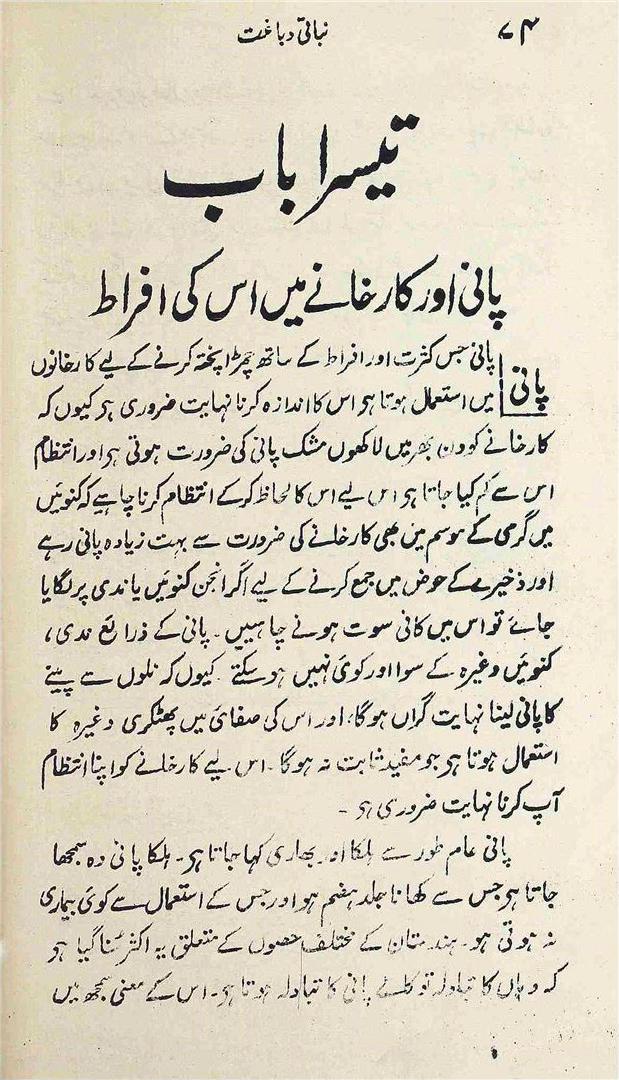 ۷۴ نباتی دباغت
تیسرا باب
پانی اور کارخانے میں اس کی افراط
پانی
پانی جس کثرت اور افراط کے ساتھ چمڑا پختہ کرنے کے لیے کارخانوں
میں استعمال ہوتا ہو اس کا اندازہ کرنا نہایت ضروری ہو کیوں کہ
کارخانے کو دن بھر میں لاکھوں مشک پانی کی ضرورت ہوتی ہو اور انتظام
اس سے کم کیا جاتا ہو اس لیے اس کا لحاظ کرکے انتظام کرنا چاہیے کہ کنوئیں
میں گرمی کے موسم میں بھی کارخانے کی ضرورت سے بہت زیادہ پانی رہے
اور ذخیرے کے حوض میں جمع کرنے کے لیے اگر انجن کنوئیں یا ندی پر لگایا
جائے تو اس میں کافی سوت ہونے چاہییں۔ پانی کے ذرائع ندی،
کنوئیں وغیرہ کے سوا اور کوئی نہیں ہو سکتے۔ کیوں کہ نلوں سے پینے
کا پانی لینا نہایت گراں ہوگا، اور اس کی صفائی میں پھٹکری وغیرہ کا
استعمال ہوتا ہو جو مفید ثابت نہ ہوگا۔ اس لیے کارخانے کو اپنا انتظام
آپ کرنا نہایت ضروری ہو۔
پانی عام طور سے ہلکا اور بھاری کہا جاتا ہو۔ ہلکا پانی وہ سمجھا
جاتا ہو جس سے کھانا جلد ہضم ہو اور جس کے استعمال سے کوئی بیماری
نہ ہوتی ہو۔ ہندستان کے مختلف حصوں کے متعلق یہ اکثر سنا گیا ہو
کہ وہاں کا تبادلہ تو کالے پانی کا تبادلہ ہوتا ہو۔ اس کے معنی سمجھ میں